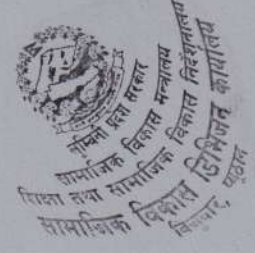 लुम्बिनी प्रदेश सरकार
सामाजिक विकास मन्त्रालय
शिक्षा तथा सामाजिक विकास निर्देशनालय
सामाजिक विकास डिभिजन कार्यालय
प्यूठान